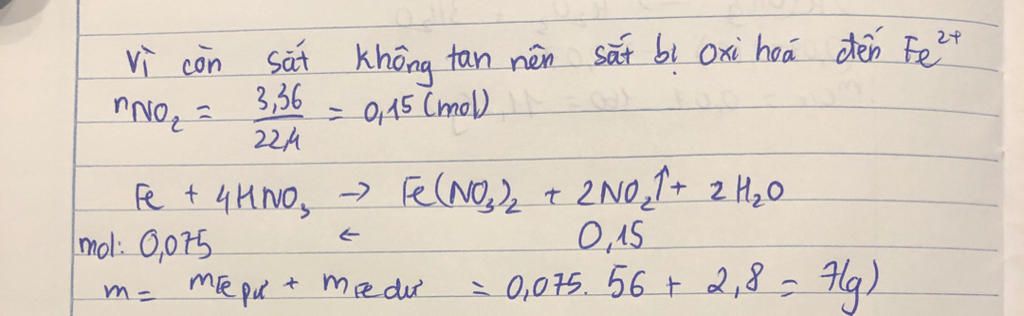 Vì còn sắt không tan nên sắt bị oxi hoá đến Fe²⁺
nNO₂ = 3,36/22,4 = 0,15 (mol)
Fe + 4HNO₃ → Fe(NO₃)₂ + 2NO₂↑ + 2H₂O
mol: 0,075 ← 0,15
m = mFe pư + mFe dư = 0,075. 56 + 2,8 = 7(g)